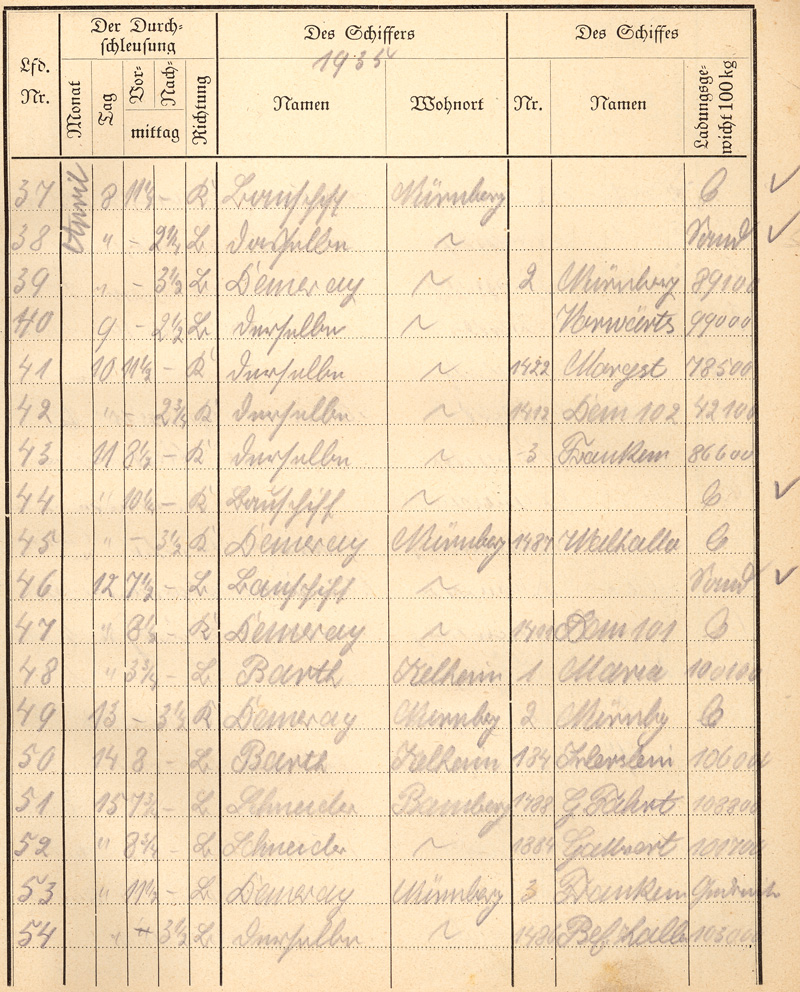 Lfd. Nr. Der Durchschleusung Des Schiffers Des Schiffes
1935
Monat Tag Vormittag Nachmittag Richtung Namen Wohnort Nr. Namen Ladungsgewicht 100 kg
37 April 8 11½ - K Bauschiff Nürnberg
38 " - 2½ L dasselbe ~ Sand
39 " - 3½ L Demeray ~ 2 Nürnberg 89100
40 9 - 2½ L derselbe ~ Vorwärts 99000
41 10 11½ - K derselbe ~ 1422 Margst 78500
42 " - 2¾ K derselbe ~ 1412 Dem 102 42100
43 11 8½ - K derselbe ~ 3 Franken 86600
44 " 10½ - K Bauschiff ~
45 " - 3½ K Demeray Nürnberg 1487 Walhalla
46 12 7½ - L Bauschiff ~ Sand
47 " 8½ - K Demeray ~ Dem 101
48 " 3¾ - L Barth Kelheim 1 Maria 100100
49 13 - 3½ K Demeray Nürnberg 2 Nürnbg
50 14 8 - L Barth Kelheim 134 106000
51 15 7¾ - L Schneider Bamberg 1488 G Fährt 108800
52 " 8¾ - L Schneider ~ 1884 101700
53 " 11½ - L Demeray Nürnberg 3 Franken
54 " 3½ L derselbe ~ 1486 103000